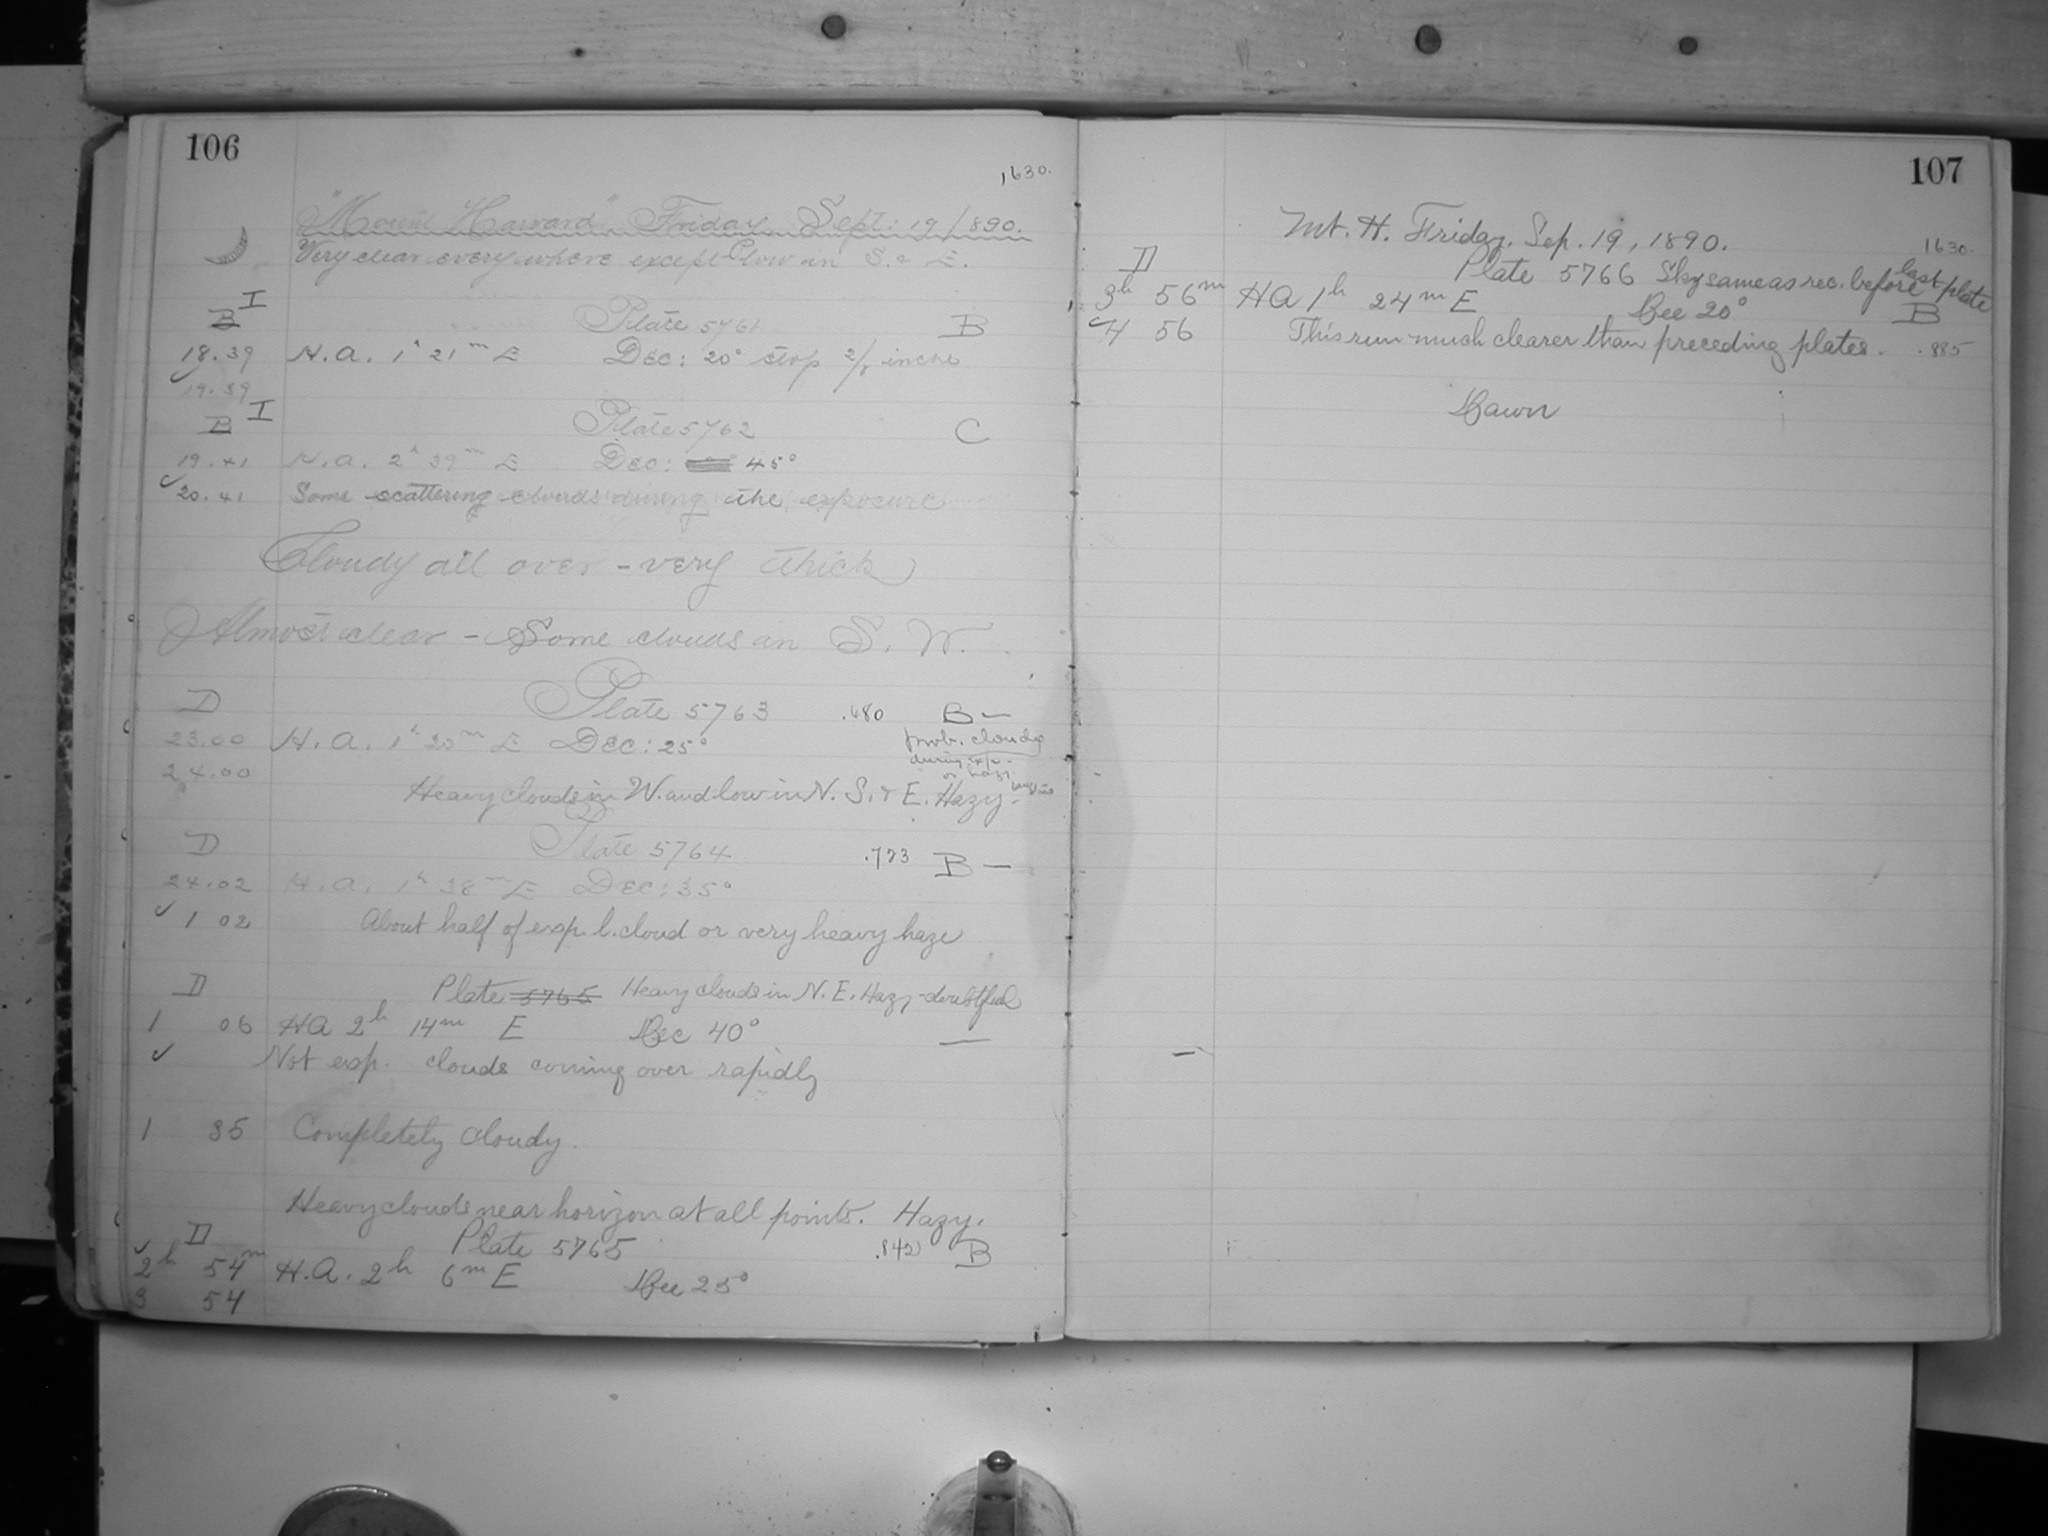 106
1630.
"Mount Harvard" Friday Sept: 19/890.
Very clear everywhere except low in S. & E.
B I
Plate 5761 B
18.39 H.A. 1h 21m E Dec: 20° stop 2/8 inche
19.39
B I
Plate 5762 C
19.41 H.A. 2h 39m E Dec: 45°
20.41 Some scattering clouds during the exposure
Cloudy all over - very thick
Almost clear - Some clouds in S. W.
D Plate 5763 .680 B—
23.00 H.A. 1h 20m E Dec: 25° prob. cloudy
during exp.
or hazy
24.00
Heavy clouds in W. and low in N. S. & E. Hazy.
D Plate 5764 .723 B—
24.02 H.A. 1h 38m E Dec: 35°
1 02 About half of exp. l. cloud or very heavy haze
D Plate 5765 Heavy clouds in N. E. Hazy - doubtful
1 06 HA 2h 14m E Dec 40° —
Not exp. clouds coming over rapidly
1 35 Completely cloudy.
Heavy clouds near horizon at all points. Hazy.
D Plate 5765 .842 B
2h 54m H.A. 2h 6m E Dec 25°
3 54
107
Mt. H. Friday, Sep. 19, 1890.
1630.
D Plate 5766 Sky same as rec. before last plate
3h 56m HA 1h 24m E Dec 20° B
4 56 This run much clearer than preceding plates. .885
Dawn